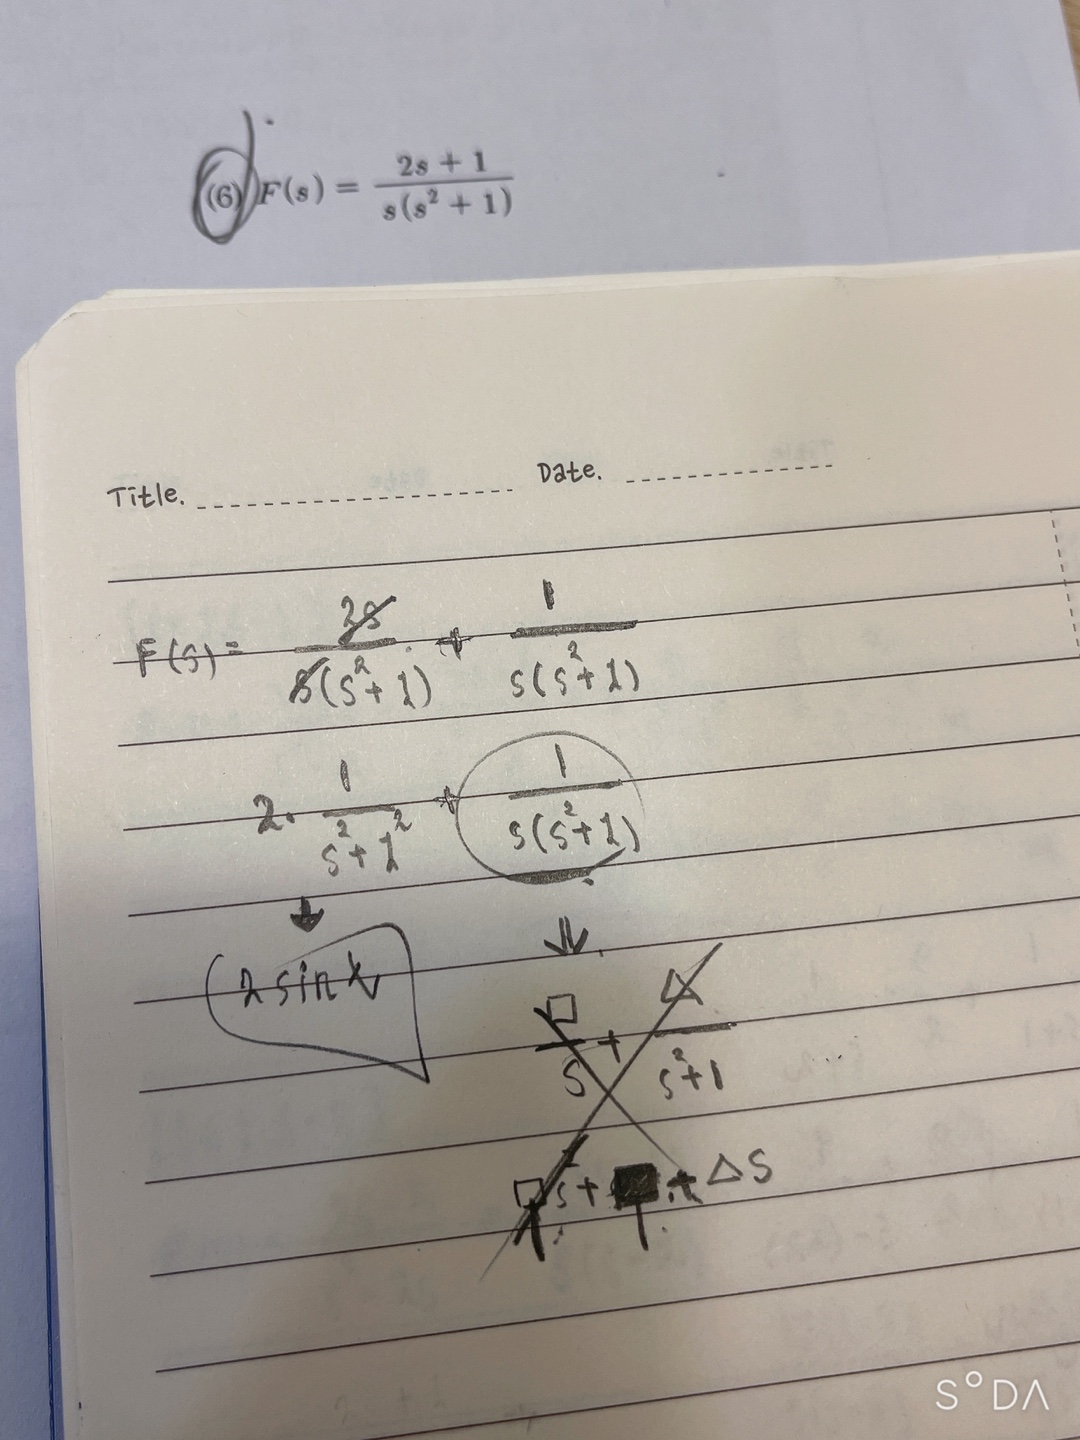 (6) F(s) = \frac{2s + 1}{s(s^2 + 1)}
Title. Date.
F(s) = \frac{2s}{s(s^2+1)} + \frac{1}{s(s^2+1)}
2 \cdot \frac{1}{s^2+1^2} + \frac{1}{s(s^2+1)}
2 sin t
\frac{□}{s} + \frac{△}{s^2+1}
□s^2 + △s
SODA